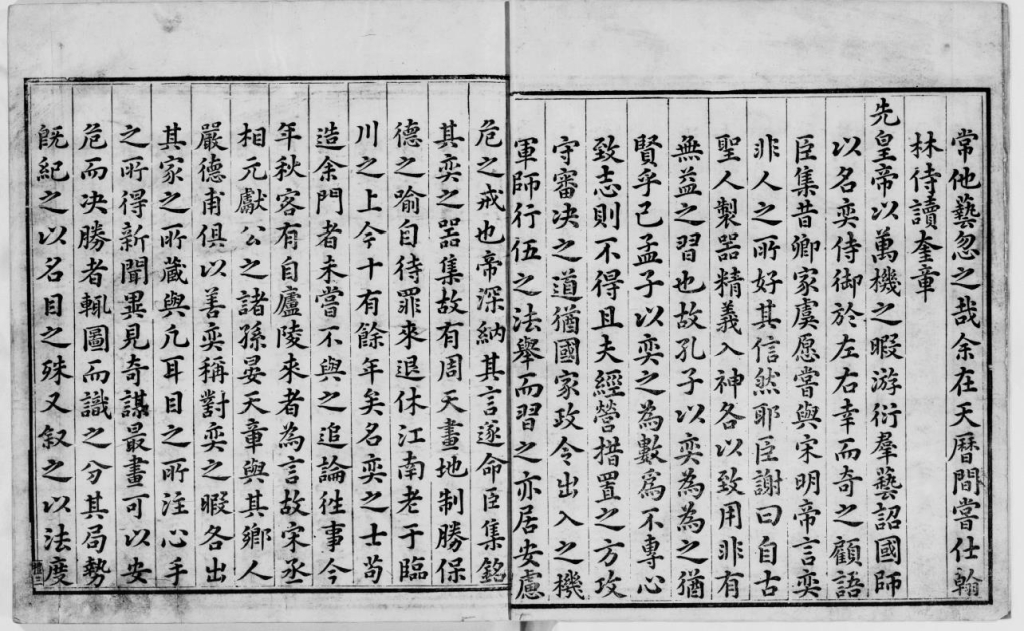 常他藝忽之哉余在天曆間嘗仕翰
林侍讀奎章
先皇帝以萬機之暇游衍羣藝詔國師
以名奕侍御於左右幸而奇之顧語
臣集昔卿家虞愿嘗與宋明帝言奕
非人之所好其信然耶臣謝曰自古
聖人製器精義入神各以致用非有
無益之習也故孔子以奕為為之猶
賢乎已孟子以奕之為數為不專心
致志則不得且夫經營措置之方攻
守審决之道猶國家政令出入之機
軍師行伍之法舉而習之亦居安慮
危之戒也帝深納其言遂命臣集銘
其奕之器集故有周天畫地制勝保
德之喻自待罪來退休江南老于臨
川之上今十有餘年矣名奕之士茍
造余門者未嘗不與之追論徃事今
年秋客有自廬陵來者為言故宋丞
相元獻公之諸孫晏天章與其鄉人
嚴德甫俱以善奕稱對奕之暇各出
其家之所藏與凢耳目之所注心手
之所得新聞異見奇謀最畫可以安
危而决勝者輒圖而識之分其局勢
旣紀之以名目之殊又叙之以法度